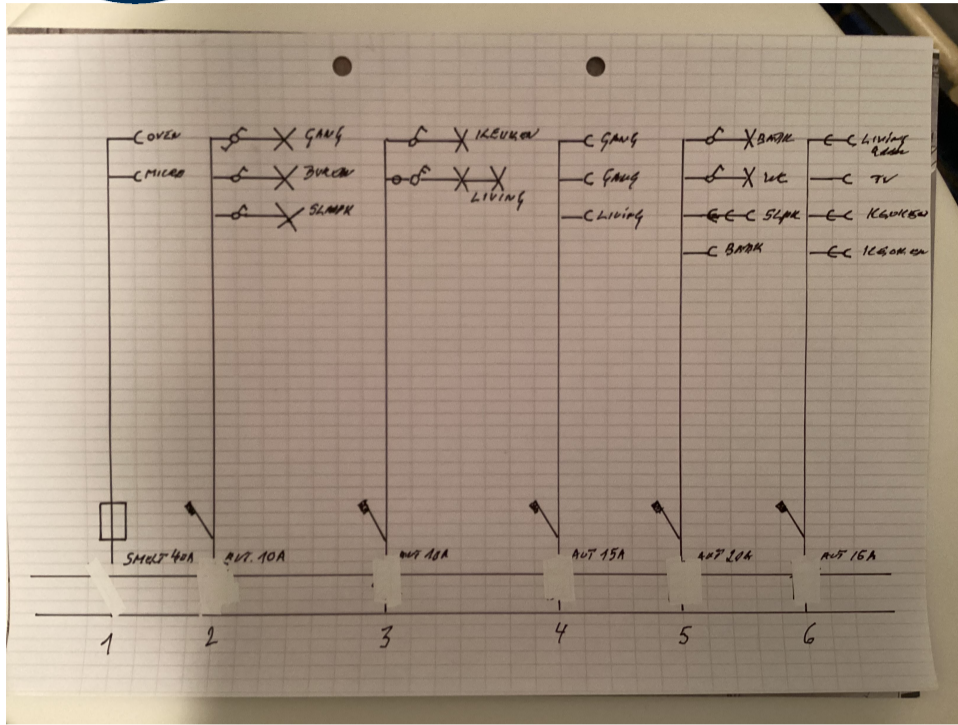 OVEN
MICRO
GANG
BUREAU
SLAAPK
KEUKEN
LIVING
GANG
GANG
LIVING
BADK
WC
SLPK
BADK
LIVING
TV
KEUKEN
KEUKEN
SMELT 40A
AUT. 10A
AUT 10A
AUT 15A
AUT 20A
AUT 16A
1
2
3
4
5
6